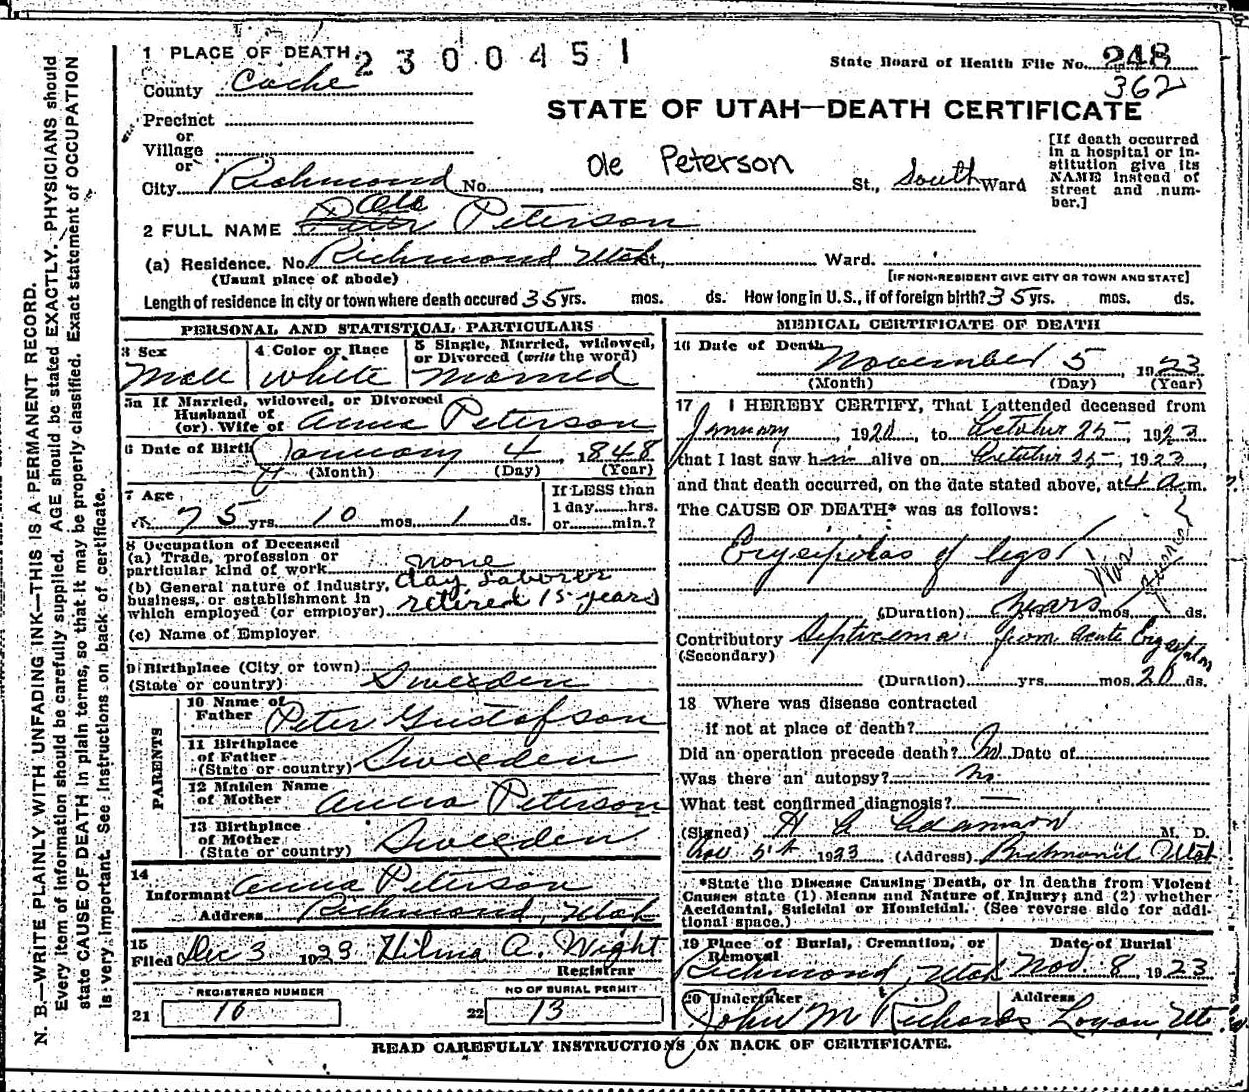 1 PLACE OF DEATH
2300451
State Board of Health File No. 248
362
County Cache
STATE OF UTAH—DEATH CERTIFICATE
Precinct
or
Village
or
City Richmond No. St., South Ward
Ole Peterson
[If death occurred in a hospital or institution give its NAME instead of street and number.]
2 FULL NAME Peter Ole Peterson
(a) Residence. No. Richmond Utah St., Ward.
(Usual place of abode)
[IF NON-RESIDENT GIVE CITY OR TOWN AND STATE]
Length of residence in city or town where death occured 35 yrs. mos. ds. How long in U.S., if of foreign birth? 35 yrs. mos. ds.
PERSONAL AND STATISTICAL PARTICULARS
3 Sex
Male
4 Color or Race
White
5 Single, Married, widowed, or Divorced (write the word)
Married
5a If Married, widowed, or Divorced
Husband of
(or) Wife of Anna Peterson
6 Date of Birth January 4, 1848
(Month) (Day) (Year)
7 Age
75 yrs. 10 mos. 1 ds.
If LESS than
1 day......hrs.
or......min.?
8 Occupation of Deceased
(a) Trade, profession or
particular kind of work none
(b) General nature of industry, day laborer
business, or establishment in
which employed (or employer) retired 15 years
(c) Name of Employer
9 Birthplace (City or town)
(State or country) Sweeden
PARENTS
10 Name of
Father Peter Gustafson
11 Birthplace
of Father
(State or country) Sweeden
12 Maiden Name
of Mother Anna Peterson
13 Birthplace
of Mother
(State or country) Sweeden
14
Informant Anna Peterson
Address Richmond, Utah
15
Filed Dec 3 1923 Hilma A. Wight
Registrar
REGISTERED NUMBER
21 16
NO OF BURIAL PERMIT
22 13
MEDICAL CERTIFICATE OF DEATH
16 Date of Death
November 5, 1923
(Month) (Day) (Year)
17 I HEREBY CERTIFY, That I attended deceased from
January, 1920, to October 25, 1923
that I last saw him alive on October 25, 1923,
and that death occurred, on the date stated above, at 4 a.m.
The CAUSE OF DEATH* was as follows:
Erysipelas of legs
(Duration) years mos. ds.
Contributory Septicema from acute Erysipelas
(Secondary)
(Duration) yrs. mos. 20 ds.
18 Where was disease contracted
if not at place of death?
Did an operation precede death? No Date of
Was there an autopsy? No
What test confirmed diagnosis? —
(Signed) H A Adamson M. D.
Nov 5th 1923 (Address) Richmond Utah
*State the Disease Causing Death, or in deaths from Violent
Causes state (1) Means and Nature of Injury; and (2) whether
Accidental, Suicidal or Homicidal. (See reverse side for additional space.)
19 Place of Burial, Cremation, or
Removal
Richmond, Utah
Date of Burial
Nov 8 1923
20 Undertaker
John M Richards
Address
Logan, Ut.
READ CAREFULLY INSTRUCTIONS ON BACK OF CERTIFICATE.
N. B.—WRITE PLAINLY WITH UNFADING INK—THIS IS A PERMANENT RECORD.
Every item of information should be carefully supplied. AGE should be stated EXACTLY. PHYSICIANS should
state CAUSE OF DEATH in plain terms, so that it may be properly classified. Exact statement of OCCUPATION
is very important. See instructions on back of certificate.